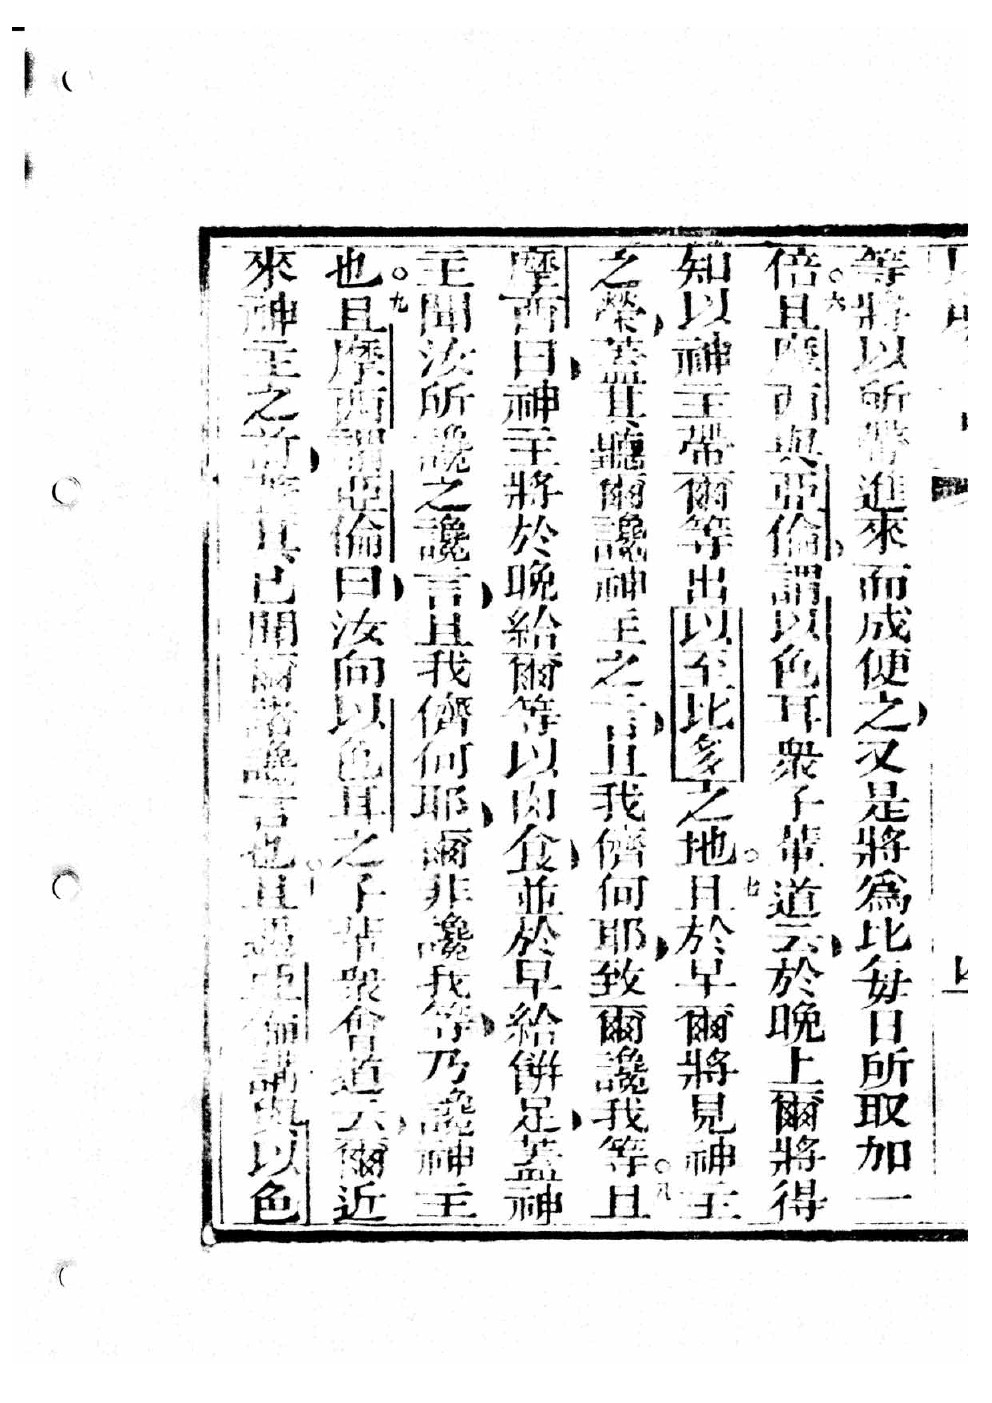 等將以所帶進來而成使之又是將爲比每日所取加一
倍○六且摩西與亞倫謂以色耳衆子輩道云於晚上爾將得
知以神主帶爾等出以至比多之地○七且於早爾將見神主
之榮蓋其聽爾讒神主之言且我儕何耶致爾讒我等○八且
摩西曰神主將於晚給爾等以肉食並於早給餅足蓋神
主聞汝所讒之讒言且我儕何耶爾非讒我等乃讒神主
也○九且摩西謂亞倫曰汝向以色耳之子輩衆會道云爾近
來神主之前蓋其已聞爾諸讒言也○且遇亞倫講與以色